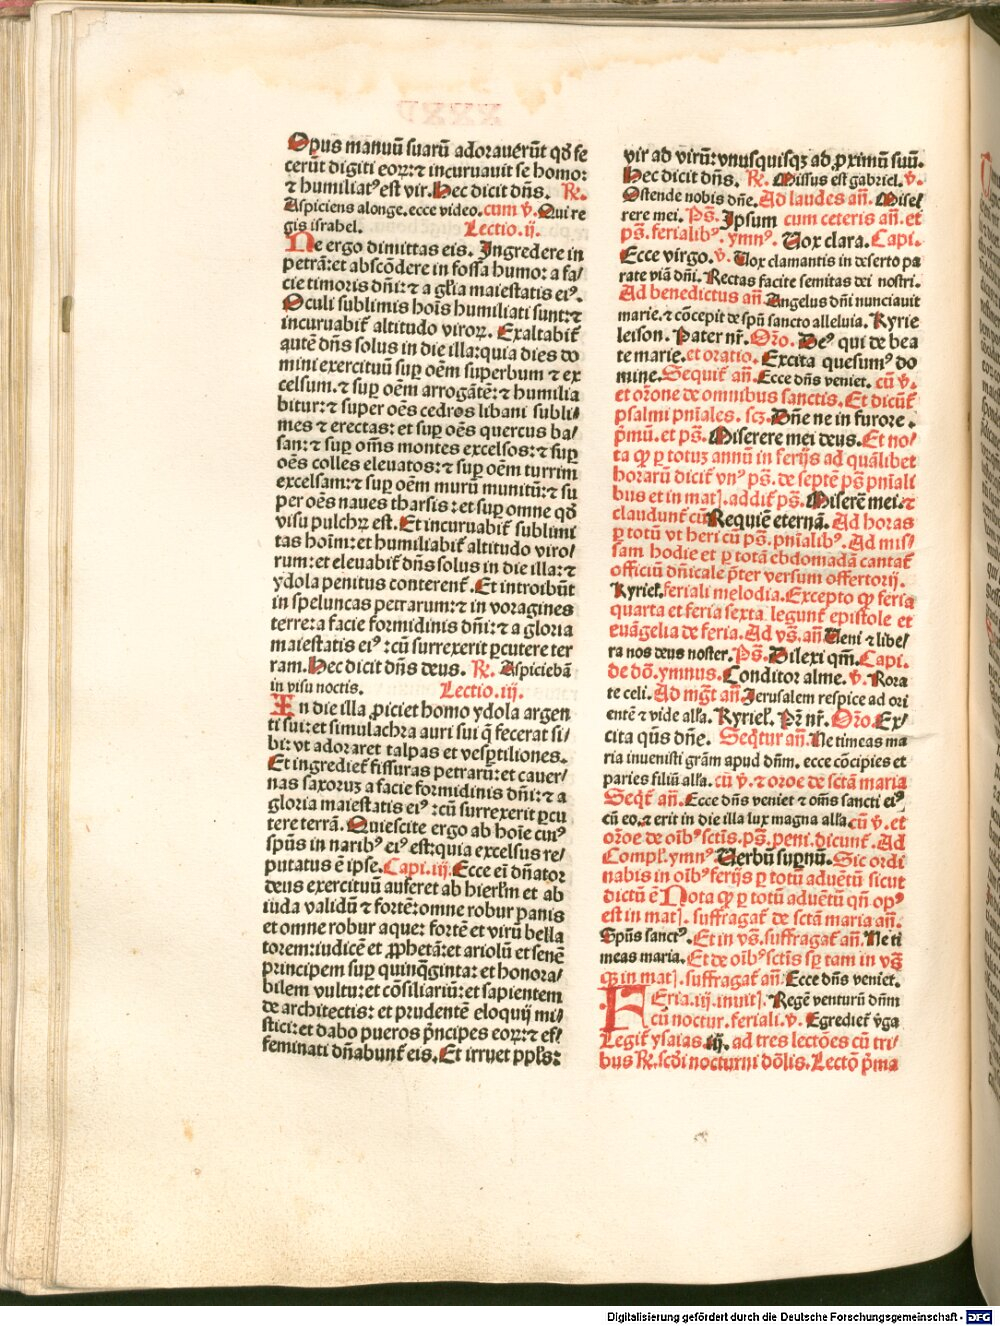 Opus manuū suarū adorauerūt qđ fe
cerūt digiti eoꝝ: ⁊ incuruauit se homo:
⁊ humiliatꝰ est vir. Hec dicit dn̄s. ℟.
Aspiciens alonge. ecce video. cum v̄. Qui re
gis israhel. Lectio .ij.
Ne ergo dimittas eis. Ingredere in
petrā: et abscōdere in fossa humo: a fa/
cie timoris dn̄i: ⁊ a gl̄ia maiestatis eiꝰ.
Oculi sublimis hoīs humiliati sunt: ⁊
incuruabit̄ altitudo viroꝝ. Exaltabit̄
autē dn̄s solus in die illa: quia dies do
mini exercituū suꝑ oēm superbum ⁊ ex
celsum. ⁊ suꝑ oēm arrogātē: ⁊ humilia
bitur: ⁊ super oēs cedros libani subli/
mes ⁊ erectas: et suꝑ oēs quercus ba/
san: ⁊ suꝑ om̄s montes excelsos: ⁊ suꝑ
oēs colles eleuatos: ⁊ suꝑ oēm turrim
excelsam: ⁊ suꝑ oēm murū munitū: ⁊ su
per oēs naues tharsis: et suꝑ omne qđ
visu pulchꝝ est. Et incuruabit̄ sublimi
tas hoīm: et humiliabit̄ altitudo viro/
rum: et eleuabit̄ dn̄s solus in die illa: ⁊
ydola penitus conterent̄. Et introibūt
in speluncas petrarum: ⁊ in voragines
terre: a facie formidinis dn̄i: ⁊ a gloria
maiestatis eiꝰ: cū surrexerit ꝑcutere ter
ram. Hec dicit dn̄s deus. ℟. Aspiciebā
in visu noctis. Lectio .iij.
In die illa ꝓiciet homo ydola argen
ti sui: et simulachra auri sui q̄ fecerat si/
bi: vt adoraret talpas et vesꝑtiliones.
Et ingrediet̄ fissuras petrarū: et cauer/
nas saxoruꝫ a facie formidinis dn̄i: ⁊ a
gloria maiestatis eiꝰ: cū surrexerit ꝑcu
tere terrā. Quiescite ergo ab hoīe cuiꝰ
spūs in naribꝰ eiꝰ est: quia excelsus re/
putatus ē ipse. Capi. iij. Ecce ei dn̄ator
deus exercituū auferet ab hierl̄m et ab
iuda validū ⁊ fortē: omne robur panis
et omne robur aque: fortē et virū bella
torem: iudicē et ꝓphetā: et ariolū et senē
principem suꝑ quinq̄ginta: et honora/
bilem vultu: et cōsiliariū: et sapientem
de architectis: et prudentē eloquij mi/
stici: et dabo pueros p̄ncipes eoꝝ: ⁊ ef/
feminati dn̄abunt̄ eis. Et irruet pp̄ls:
vir ad virū: vnusquisqꝫ ad ꝓximū suū.
Hec dicit dn̄s. ℟. Missus est gabriel. v̄.
Ostende nobis dn̄e. Ad laudes an̄. Mise/
rere mei. Ps̄. Ipsum cum ceteris an̄. et
ps̄. ferialibꝰ. ymnꝰ. Uox clara. Capi.
Ecce virgo. v̄. Uox clamantis in deserto pa
rate viā dn̄i. Rectas facite semitas dei nostri.
Ad benedictus an̄ Angelus dn̄i nunciauit
marie. ⁊ cōcepit de spū sancto alleluia. Kyrie
leison. Pater nr̄. Oro. Deꝰ qui de bea
te marie. et oratio. Excita quesumꝰ do
mine. Sequit̄ an̄. Ecce dn̄s veniet. cū v̄.
et or̄one de omnibus sanctis. Et dicūt̄
psalmi pn̄iales. scꝫ. Dn̄e ne in furore.
p̄mū. et ps̄. Miserere mei deus. Et no/
ta qꝙ ꝑ totuꝫ annū in ferijs ad quālibet
horarū dicit̄ vnꝰ ps̄. de septē ps̄ pn̄iali
bus et in mat̄. addit̄ ps̄. Miserē mei. ⁊
claudunt̄ cū Requiē eternā. Ad horas
ꝑ totū vt heri cū ps̄. pn̄ialibꝰ. Ad mis/
sam hodie et ꝑ totā ebdomadā cantat̄
officiū dn̄icale p̄ter versum offertorij.
Kyriel̄. feriali melodia. Excepto qꝙ feria
quarta et feria sexta legunt̄ epistole et
euāgelia de feria. Ad vs̄. an̄ Ueni ⁊ libe/
ra nos deus noster. Ps̄. Dilexi qm̄. Capi.
de dō. ymnus. Conditor alme. v̄. Rora
te celi. Ad mḡt an̄ Jerusalem respice ad ori
entē ⁊ vide all̄a. Kyriel̄. Pr̄ nr̄. Oro. Ex/
cita qūs dn̄e. Seq̄tur an̄. Ne timeas ma
ria inuenisti grām apud dn̄m. ecce cōcipies et
paries filiū all̄a. cū v̄. ⁊ oroe de sctā maria
Seqt̄ an̄. Ecce dn̄s veniet ⁊ om̄s sancti eiꝰ
cū eo. ⁊ erit in die illa lux magna all̄a. cū v̄. et
or̄oe de oībꝰ sctīs. ps̄. peni. dicunt̄. Ad
Compl̄. ymnꝰ Uerbū suꝑnū. Sic ordi
nabis in oībꝰ ferijs ꝑ totū aduētū sicut
dictū ē Nota qꝙ ꝑ totū aduētū qn̄ opꝰ
est in mat̄. suffragat̄ de sctā maria an̄.
Spūs sanctꝰ. Et in vs̄. suffragat̄ an̄. Ne ti
meas maria. Et de oībꝰ sctīs sꝑ tam in vs̄
qꝫ in mat̄. suffragat̄ an̄. Ecce dn̄s veniet.
FEria. iij. inuit̄. Regē venturū dn̄m
cū noctur. feriali. v̄. Egrediet̄ v̄ga
Legit̄ ysaias .iij. ad tres lectōes cū tri/
bus ℟. scd̄i nocturni dōlis. Lectō p̄ma
Digitalisierung gefördert durch die Deutsche Forschungsgemeinschaft - DFG